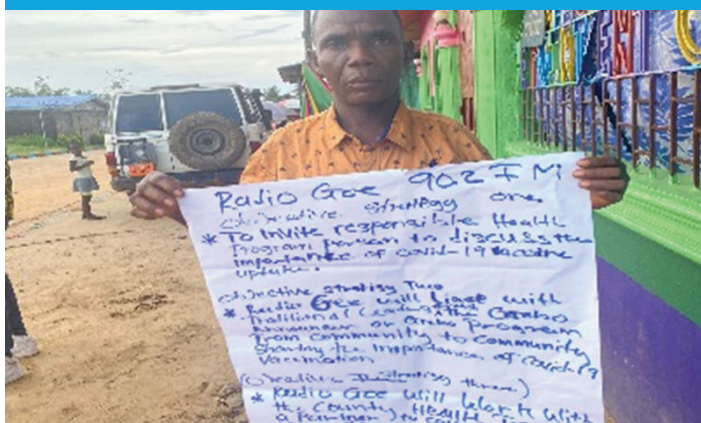 Radio Gee 902 FM
Objective strategy one
* To invite responsible Health
Program person to discuss the
importance of covid-19 vaccine
uptake.
Objective strategy Two
* Radio Gee will liase with
Traditional Leaders, the
announcer or program
From community to community
sharing the importance of covid-19
vaccination
Three
* Radio Gee will work with
the County Health
a partner to